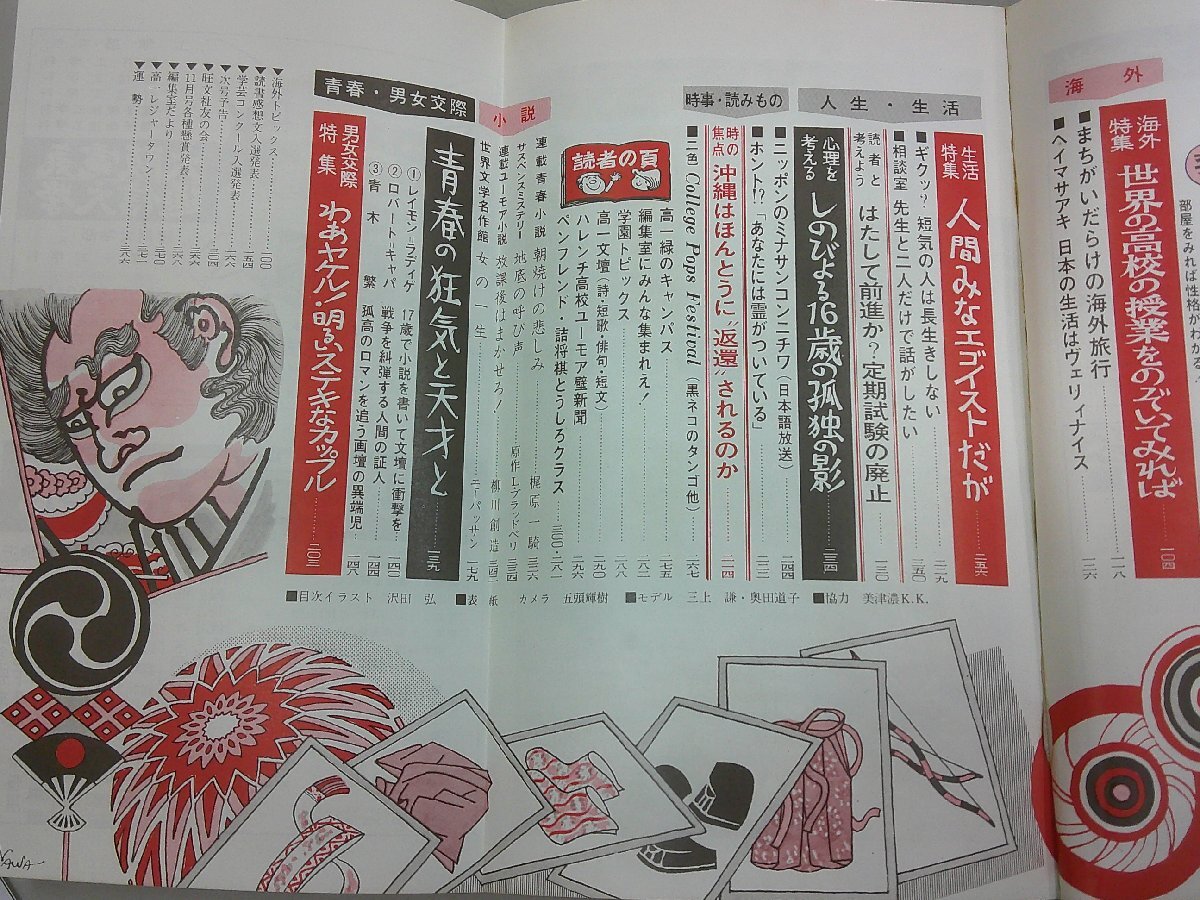 海外
部屋をみれば性格がわかる
海外特集 世界の高校の授業をのぞいてみれば……一〇四
■まちがいだらけの海外旅行……一一八
■ヘイマサアキ 日本の生活はヴェリィナイス……二六
人生・生活
生活特集 人間みなエゴイストだが……二五六
■ギクッ?短気の人は長生きしない……三二九
■相談室 先生と二人だけで話がしたい……三五〇
読者と考えよう はたして前進か?定期試験の廃止……一三〇
心理を考える しのびよる16歳の孤独の影……二三四
時事・読みもの
■ニッポンのミナサンコンニチワ(日本語放送)……二四四
■ホント!?「あなたには霊がついている」……三二二
時の焦点 沖縄はほんとうに“返還”されるのか……二一四
■二色 College Pops Festival(黒ネコのタンゴ他)……一六七
読者の頁
高一緑のキャンパス……二七五
編集室にみんな集まれ!……二八二
学園トピックス……二八八
高一文壇(詩・短歌・俳句・短文)……二九〇
ハレンチ高校ユーモア壁新聞……二九六
ペンフレンド・詰将棋とうしろクラス……三〇〇・二八一
小説
連載青春小説 朝焼けの悲しみ……梶原一騎 三一六
サスペンスミステリー 地底の呼び声……原作L.ブラッドベリ 三三四
連載ユーモア小説 放課後はまかせろ!……柳川創造 三四二
世界文学名作館 女の一生……モーパッサン 一七九
青春・男女交際
青春の狂気と天才と……一三九
①レイモン・ラディゲ 17歳で小説を書いて文壇に衝撃を…一四〇
②ロバート=キャパ 戦争を糾弾する人間の証人……一四四
③青木繁 孤高のロマンを追う画壇の異端児…一四八
男女交際特集 わあヤケル!明るいステキなカップル……二〇三
■目次イラスト 沢田 弘 ■表紙 カメラ 五頭輝樹 ■モデル 三上 謙・奥田道子 ■協力 美津濃K.K.
◇海外トピックス……一〇〇
◇読書感想文入選発表……一五四
◇学芸コンクール入選発表……
◇次号予告……二五四
◇旺文社友の会……
◇11月号各種懸賞発表……
◇編集室だより……
◇高一レジャータウン……
◇運勢……三八六